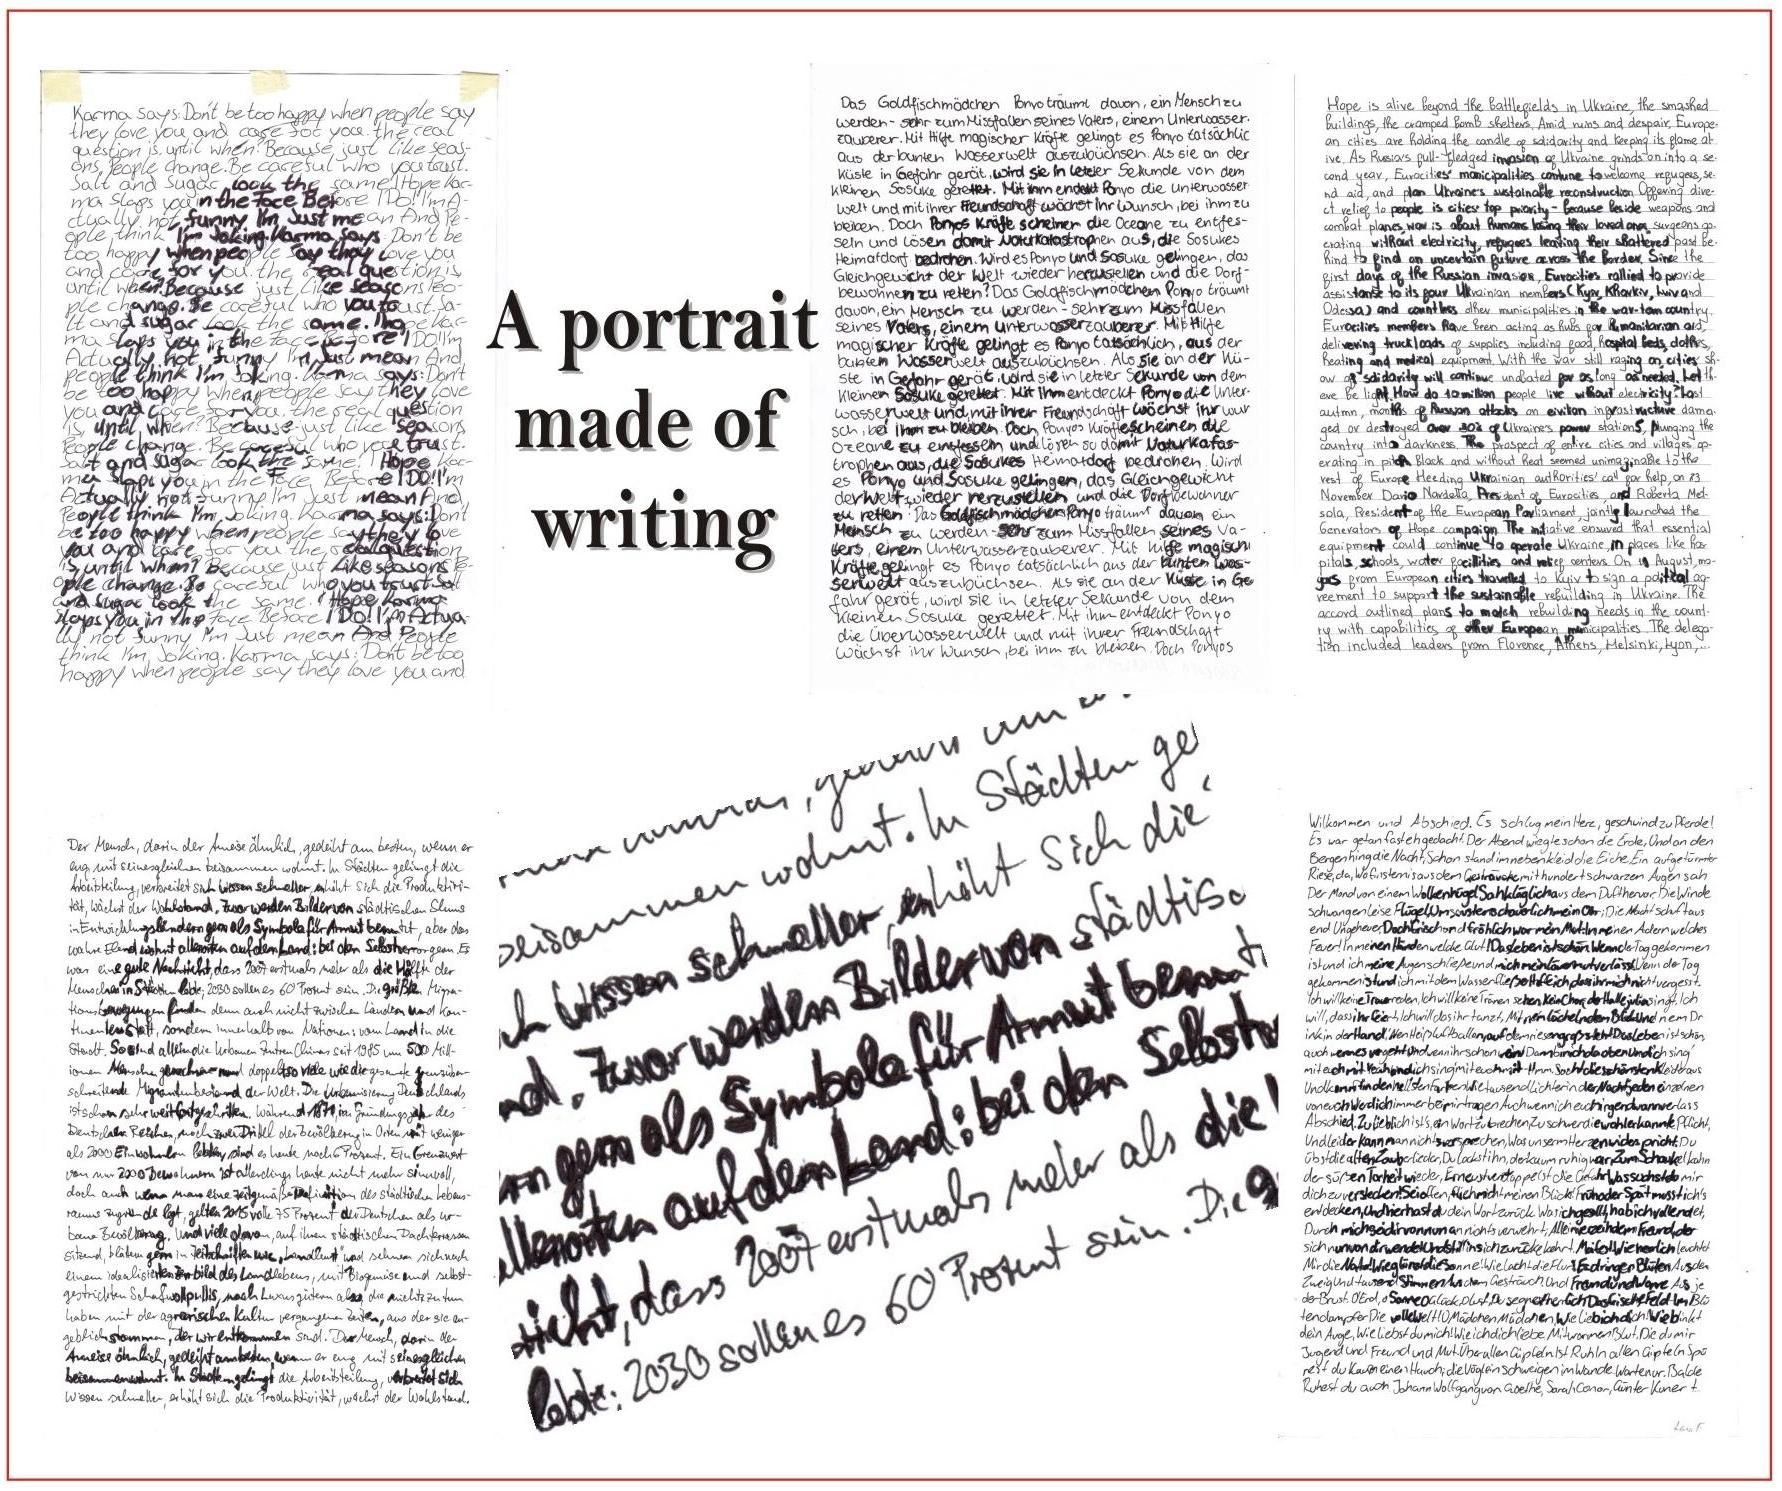 Karma says: Don't be too happy when people say
they love you and care for you. the real
question is, until when? Because just like seas-
ons, People change. Be careful who you trust.
Salt and sugar look the same. Hope Kar-
ma Slaps you in the Face Before I Do! I'm A-
ctually not funny I'm Just mean And Pe-
ople think I'm Joking. Karma says: Don't be
too happy when people say they love you
and care for you. the real question is
until when? Because just like seasons Peo-
ple change. Be careful who you trust. Sa-
lt and sugar look the same. Hope Kar-
ma slaps you in the face Before I Do! I'm
Actually not funny I'm Just mean And
people think I'm Joking. Karma says: Don't
be too happy when people say they love
you and care for you. the real question
is, until when? Because just like seasons
People change. Be careful who you trust.
Salt and sugar look the same. Hope Kar-
ma slaps you in the Face Before I Do! I'm
Actually not funny I'm Just mean And
People think I'm Joking. Karma says: Don't
be too happy when people say they love
you and care for you the real question
is until when? Because just Like seasons Pe-
ople change. Be careful who you trust. Salt
and sugar look the same. Hope Karma
slaps you in the face Before I Do! I'm Actua-
lly not funny I'm Just mean And People
think I'm Joking. Karma says: Don't be too
happy when people say they love you and
A portrait
made of
writing
Das Goldfischmädchen Ponyo träumt davon, ein Mensch zu
werden - sehr zum Missfallen seines Vaters, einem Unterwasser.
zauberer. Mit Hilfe magischer Kräfte gelingt es Ponyo tatsächlic
aus der bunten Wasserwelt auszubüchsen. Als sie an der
Küste in Gefahr gerät, wird sie in letzter Sekunde von dem
kleinen Sosuke gerettet. Mit ihm endeckt Ponyo die Unterwasser
welt und mit ihrer Freundschaft wächst ihr Wunsch, bei ihm zu
beiben. Doch Ponyos Kräfte scheinen die Oceane zu entfes-
seln und lösen damit Naturkatastrophen aus, die Sosukes
Heimatdorf bedrohen. Wird es Ponyo und Sosuke gelingen, das
Gleichgewicht der Welt wieder herzustellen und die Dorf-
bewohner zu retten? Das Goldfischmädchen Ponyo träumt
davon, ein Mensch zu werden - sehr zum Missfallen
seines Vaters, einem Unterwasserzauberer. Mit Hilfe
magischer Kräfte gelingt es Ponyo tatsächlich, aus der
bunten Wasserwelt auszubüchsen. Als sie an der Kü-
ste in Gefahr gerät, wird sie in letzter Sekunde von dem
kleinen Sosuke gerettet. Mit ihm entdeckt Ponyo die Unter-
wasserwelt und mit ihrer Freundschaft wächst ihr wun
sch, bei ihm zu bleiben. Doch Ponyos Kräfte scheinen die
Ozeane zu entfesseln und lösen so damit Naturkatas-
trophen aus, die Sosukes Heimatdorf bedrohen. Wird
es Ponyo und Sosuke gelingen, das Gleichgewicht
der Welt wieder herzustellen und die Dorfbewohner
zu retten? Das Goldfischmädchen Ponyo träumt davon ein
Mensch zu werden - sehr zum Missfallen seines Va-
ters, einem Unterwasserzauberer. Mit Hilfe magisch
Kräfte gelingt es Ponyo tatsächlich aus der bunten Was-
serwelt auszubüchsen. Als sie an der Küste in Ge
fahr gerät, wird sie in letzter Sekunde von dem
kleinen Sosuke gerettet. Mit ihm entdeckt Ponyo
die Überwasserwelt und mit ihrer Freundschaft
wächst ihr Wunsch, bei ihm zu bleiben. Doch Ponyos
Hope is alive beyond the battlefields in Ukraine, the smashed
buildings, the cramped bomb shelters. Amid ruins and despair, Europe-
an cities are holding the candle of solidarity and keeping its flame al-
ive. As Russia's full-fledged invasion of Ukraine grinds on into a se-
cond year, Eurocities' municipalities continue to welcome refugees, se-
nd aid, and plan Ukraine's sustainable reconstruction Offering dire-
ct relief to people is cities' top priority - because beside weapons and
combat planes, war is about humans losing their loved ones, surgeons op-
erating without electricity, refugees leaving their shattered past be-
hind to find an uncertain future across the border. Since the
first days of the Russian invasion, Eurocities rallied to provide
assistance to its four Ukrainian members (Kyiv, Kharkiv, Lviv and
Odessa) and countless other municipalities in the war-torn country.
Eurocities members have been acting as hubs for humanitarian aid,
delivering truckloads of supplies including food, hospital beds, clothes,
heating and medical equipment. With the war still raging on, cities' sh-
ow of solidarity will continue unabated for as long as needed. Let th-
ere be light. How do 10 million people live without electricity? Last
autmn, months of Russian attacks on civilian infrastructure dama-
ged or destroyed over 50% of Ukraine's power stations, plunging the
country into darkness. The prospect of entire cities and villages op-
erating in pitch black and without heat seemed unimaginable to the
rest of Europe Heeding Ukrainian authorities' call for help, on 23
November Dario Nardella, President of Eurocities, and Roberta Met-
sola, President of the European Parliament, jointly launched the
Generators of Hope campaign. The initiative ensured that essential
equipment could continue to operate Ukraine, in places like hos-
pitals, schools, water facilities and relief centers. On 19 August, ma-
yors from European cities travelled to Kyiv to sign a political ag-
reement to support the sustainable rebuilding in Ukraine. The
accord outlined plans to match rebuilding needs in the count-
ry with capabilities of other European municipalities. The delega-
tion included leaders from Florence, Athens, Helsinki, Lyon,...
Der Mensch, darin der Ameise ähnlich, gedeiht am besten, wenn er
eng mit seinesgleichen beisammen wohnt. In Städten gelingt die
Arbeitsteilung, verbreitet sich Wissen schneller, erhöht sich die Produktivi-
tät, wächst der Wohlstand. Zwar werden Bilder von städtischen Slums
in Entwicklungsländern gern als Symbole für Armut benutzt, aber das
wahre Elend wohnt allerorten auf dem Land: bei den Selbstversorgern. Es
war eine gute Nachricht, dass 2007 erstmals mehr als die Hälfte der
Menschen in Städten lebte; 2030 sollen es 60 Prozent sein. Die größten Migra-
tionsbewegungen finden denn auch nicht zwischen Ländern und Kon-
tinenten statt, sondern innerhalb von Nationen: vom Land in die
Stadt. So sind allein die urbanen Zentren Chinas seit 1985 um 500 Mill-
ionen Menschen gewachsen und doppelt so viele wie die gesamte grenzüber-
schreitende Migrantenbestand der Welt. Die Urbanisierung Deutschlands
ist schon sehr weit fortgeschritten. Während 1871, im Gründungsjahr des
Deutschen Reiches, noch zwei Drittel der Bevölkerung in Orten mit weniger
als 2000 Einwohnern lebten, sind es heute noch 6 Prozent. Ein Grenzwert
von nur 2000 Bewohnern ist allerdings heute nicht mehr sinnvoll,
doch auch wenn man eine zeitgemäße Definition des städtischen Lebens-
raums zugrunde legt, gelten 2015 volle 75 Prozent der Deutschen als ur-
bane Bevölkerung, und viele davon, auf ihren städtischen Dachterrassen
sitzend, blättern gern in Zeitschriften wie „Landlust" und sehnen sich nach
einem idealisierten Bild des Landlebens, mit Biogemüse und selbst-
gestrickten Schafwollpullis, nach Luxusgütern also, die nichts zu tun
haben mit der agrarischen Kultur vergangener Zeiten, aus der sie an-
geblich stammen, der wir entkommen sind. Der Mensch, darin der
Ameise ähnlich, gedeiht am besten, wenn er eng mit seinesgleichen
beisammen wohnt. In Städten gelingt die Arbeitsteilung, verbreitet sich
Wissen schneller, erhöht sich die Produktivität, wächst der Wohlstand.
beisammen wohnt. In Städten ge
ch Wissen schneller, erhöht sich die
nd. Zwar werden Bilder von städtisc
rn gern als Symbole für Armut benut
allerorten auf dem Land: bei den Selbstv
richt, dass 2007 erstmals mehr als die
lebte; 2030 sollen es 60 Prozent sein. Die g
Willkommen und Abschied. Es schlug mein Herz, geschwind zu Pferde!
Es war getan fast eh gedacht. Der Abend wiegte schon die Erde, Und an den
Bergen hing die Nacht; Schon stand im nebenkleid die Eiche, Ein aufgetürmter
Riese, da, Wo Finsternis aus dem Gesträuche mit hundert schwarzen Augen sah
Der Mond von einem Wolkenhügel Sah kläglich aus dem Duft hervor. Die Winde
schwangen leise Flügel, Umsausten schauerlich mein Ohr; Die Nacht schuf taus
end Ungeheuer, Doch frisch und fröhlich war mein Mut: In meinen Adern welches
Feuer! In meinen Herzen welche Glut! Das leben ist schön, Wenn der Tag gekommen
ist und ich meine Augen schließe und mich mein Lebensmut verlässt Wenn der Tag
gekommen ist und ich mit dem Wasser fließe hoffe ich, dass ihr mich nicht vergesst.
Ich will keine Trauerreden, Ich will keine Tränen sehen, kein Chor, der Halleluja singt. Ich
will, dass ihr feiert, Ich will dass ihr tanzt. Mit nem lächelndem Blick Und nem Dr
ink in der Hand. 'Nen Heißluftballon, auf dem riesengroß steht: Das Leben ist schön,
auch wenn es vergeht Und wenn ihr schon weint Dann bin ich da oben Und ich sing'
Abschied. Zu lieblich ist's, ein Wort zu brechen Zu schwer die wohlerkannte Pflicht,
Und leider kann man nichts versprechen, Was unserm Herzen widerspricht. Du
übst die alten Zauberlieder, Du lockst ihn, der kaum ruhig war, Zum Schaukelkahn
der süßen Torheit wieder, Erneust verdoppelst die Gefahr. Was suchst du mir
dich zu verstecken! Sei offen, flieh nicht meinen Blick! Früh oder Spät musst ich's
entdecken, Und hier hast du dein Wort zurück. Was ich gesollt, hab ich vollendet,
Durch mich sei dir von nun an nichts verwehrt, Allein verzeih dem Freund, der
sich nun von dir wendet Und still in sich zurücke kehrt. Maifest Wie herrlich leuchtet
Mir die Natur! Wie glänzt die Sonne! Wie lacht die Flur! Es dringen Blüten Aus dem
Zweig Und tausend Stimmen Aus dem Gesträuch Und Freund und Wonne Aus je
der Brust. O Erd, o Sonne O Glück, o Lust, Du segnest herrlich Das frische Feld Im Blü
tendampfe Die volle Welt! O Mädchen Mädchen, Wie lieb ich dich! Wie blinkt
dein Auge, Wie liebst du mich! Wie ich dich liebe Mit warmen Blut. Die du mir
Jugend und Freund und Mut. Über allen Gipfeln Ist Ruh In allen Gipfeln Spü
rest du Kaum einen Hauch; die Vöglein schweigen im Walde. Warte nur. Balde
Ruhest du auch Johann Wolfgang von Goethe, Sarah Conor, Günter Kunert